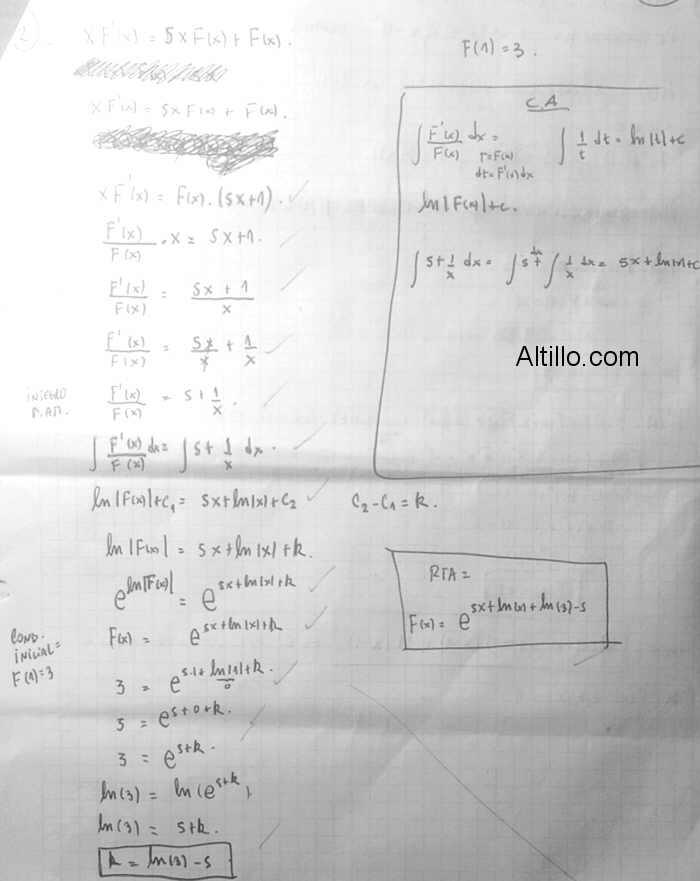 2)
x F'(x) = 5x F(x) + F(x).
F(1) = 3.
x F'(x) = 5x F(x) + F(x).
x F'(x) = F(x) . (5x+1).
F'(x)/F(x) . x = 5x+1.
F'(x)/F(x) = (5x + 1)/x
F'(x)/F(x) = 5x/x + 1/x
INTEGRO
M.A.M.
F'(x)/F(x) = 5 + 1/x.
∫ F'(x)/F(x) dx = ∫ 5 + 1/x dx.
ln|F(x)| + C₁ = 5x + ln|x| + C₂
C₂ - C₁ = k.
ln|F(x)| = 5x + ln|x| + k.
e^(ln|F(x)|) = e^(5x + ln|x| + k)
COND.
INICIAL =
F(1) = 3
F(x) = e^(5x + ln|x| + k)
3 = e^(5.1 + ln|1| + k).
0
5 = e^(5 + 0 + k).
3 = e^(5+k).
ln(3) = ln(e^(5+k))
ln(3) = 5+k.
k = ln(3) - 5
C.A
∫ F'(x)/F(x) dx =
t = F(x)
dt = F'(x) dx
∫ 1/t dt = ln|t| + c
ln|F(x)| + c.
∫ 5 + 1/x dx = ∫ 5 dx + ∫ 1/x dx = 5x + ln|x| + c
Altillo.com
RTA =
F(x) = e^(5x + ln(x) + ln(3) - 5)